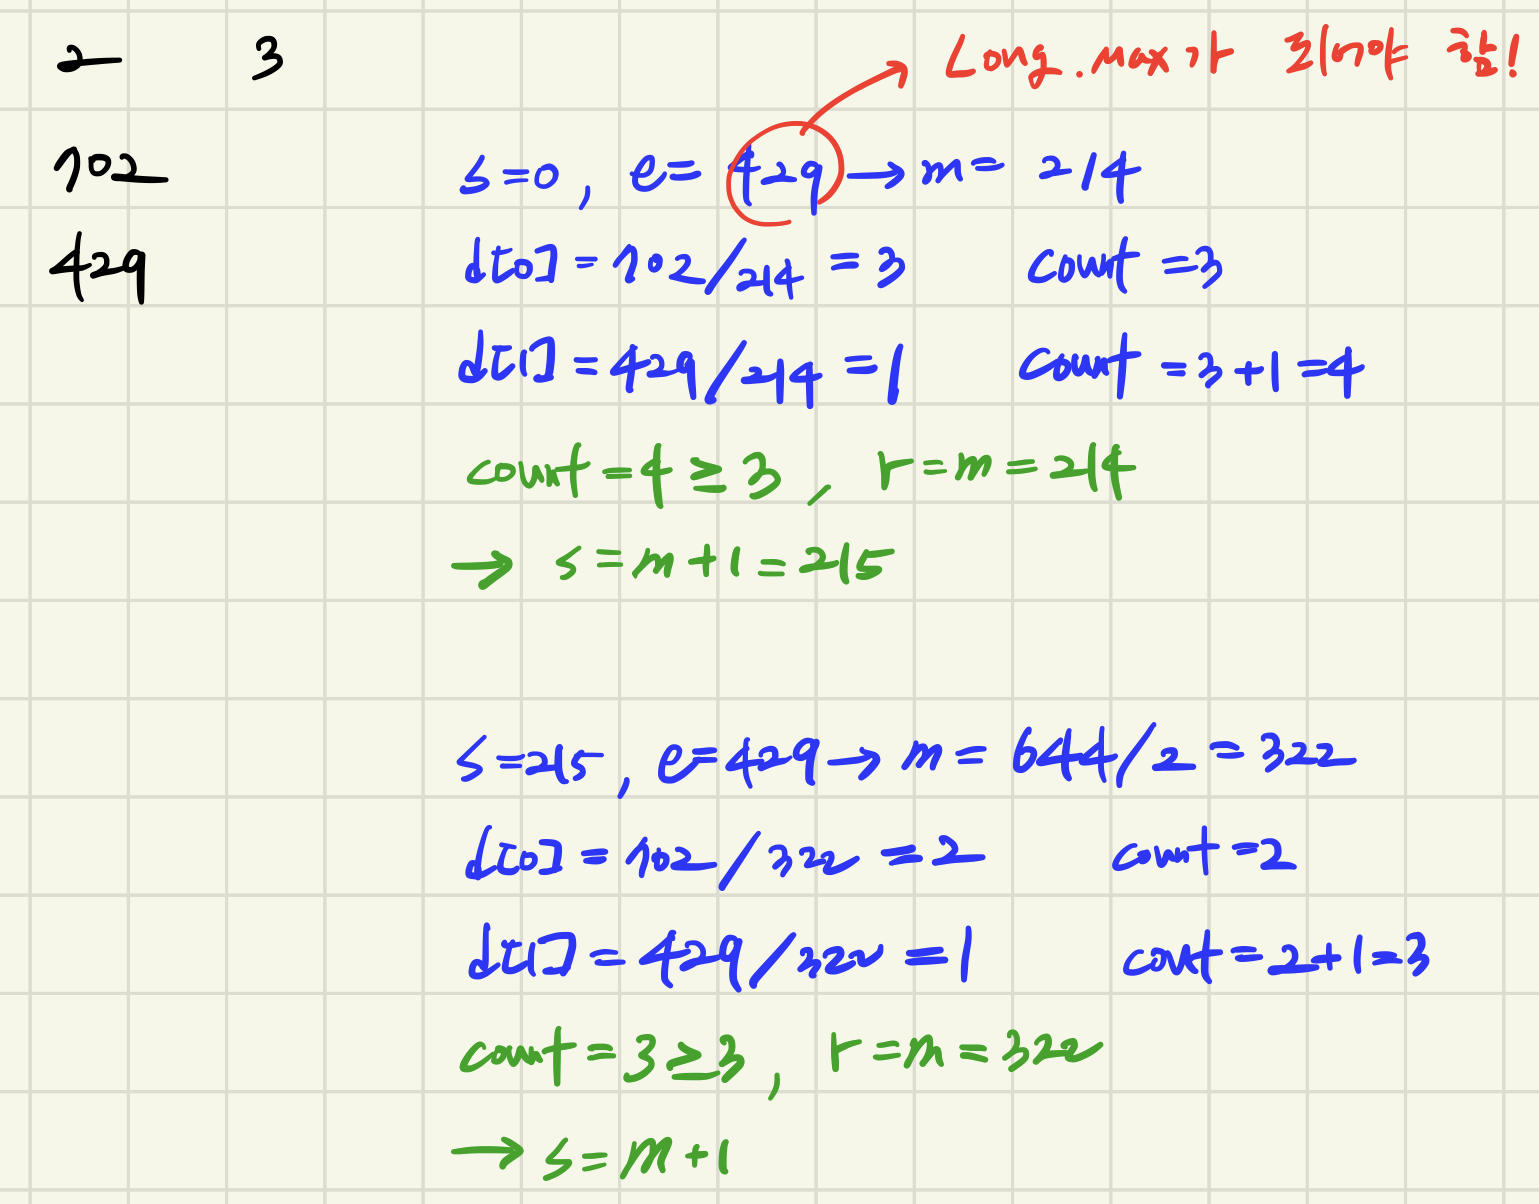 2 3
Long.max가 되어야 함!
702
s=0, e=429 → m= 214
429
d[0] = 702/214 = 3 count =3
d[1] = 429/214 =1 count =3+1=4
count=4 ≥ 3, r=m=214
→ s=m+1=215
s=215, e=429 → m= 644/2 =322
d[0] = 702/322 =2 count =2
d[1] = 429/322 =1 count=2+1=3
count = 3≥3, r=m=322
→ s=m+1